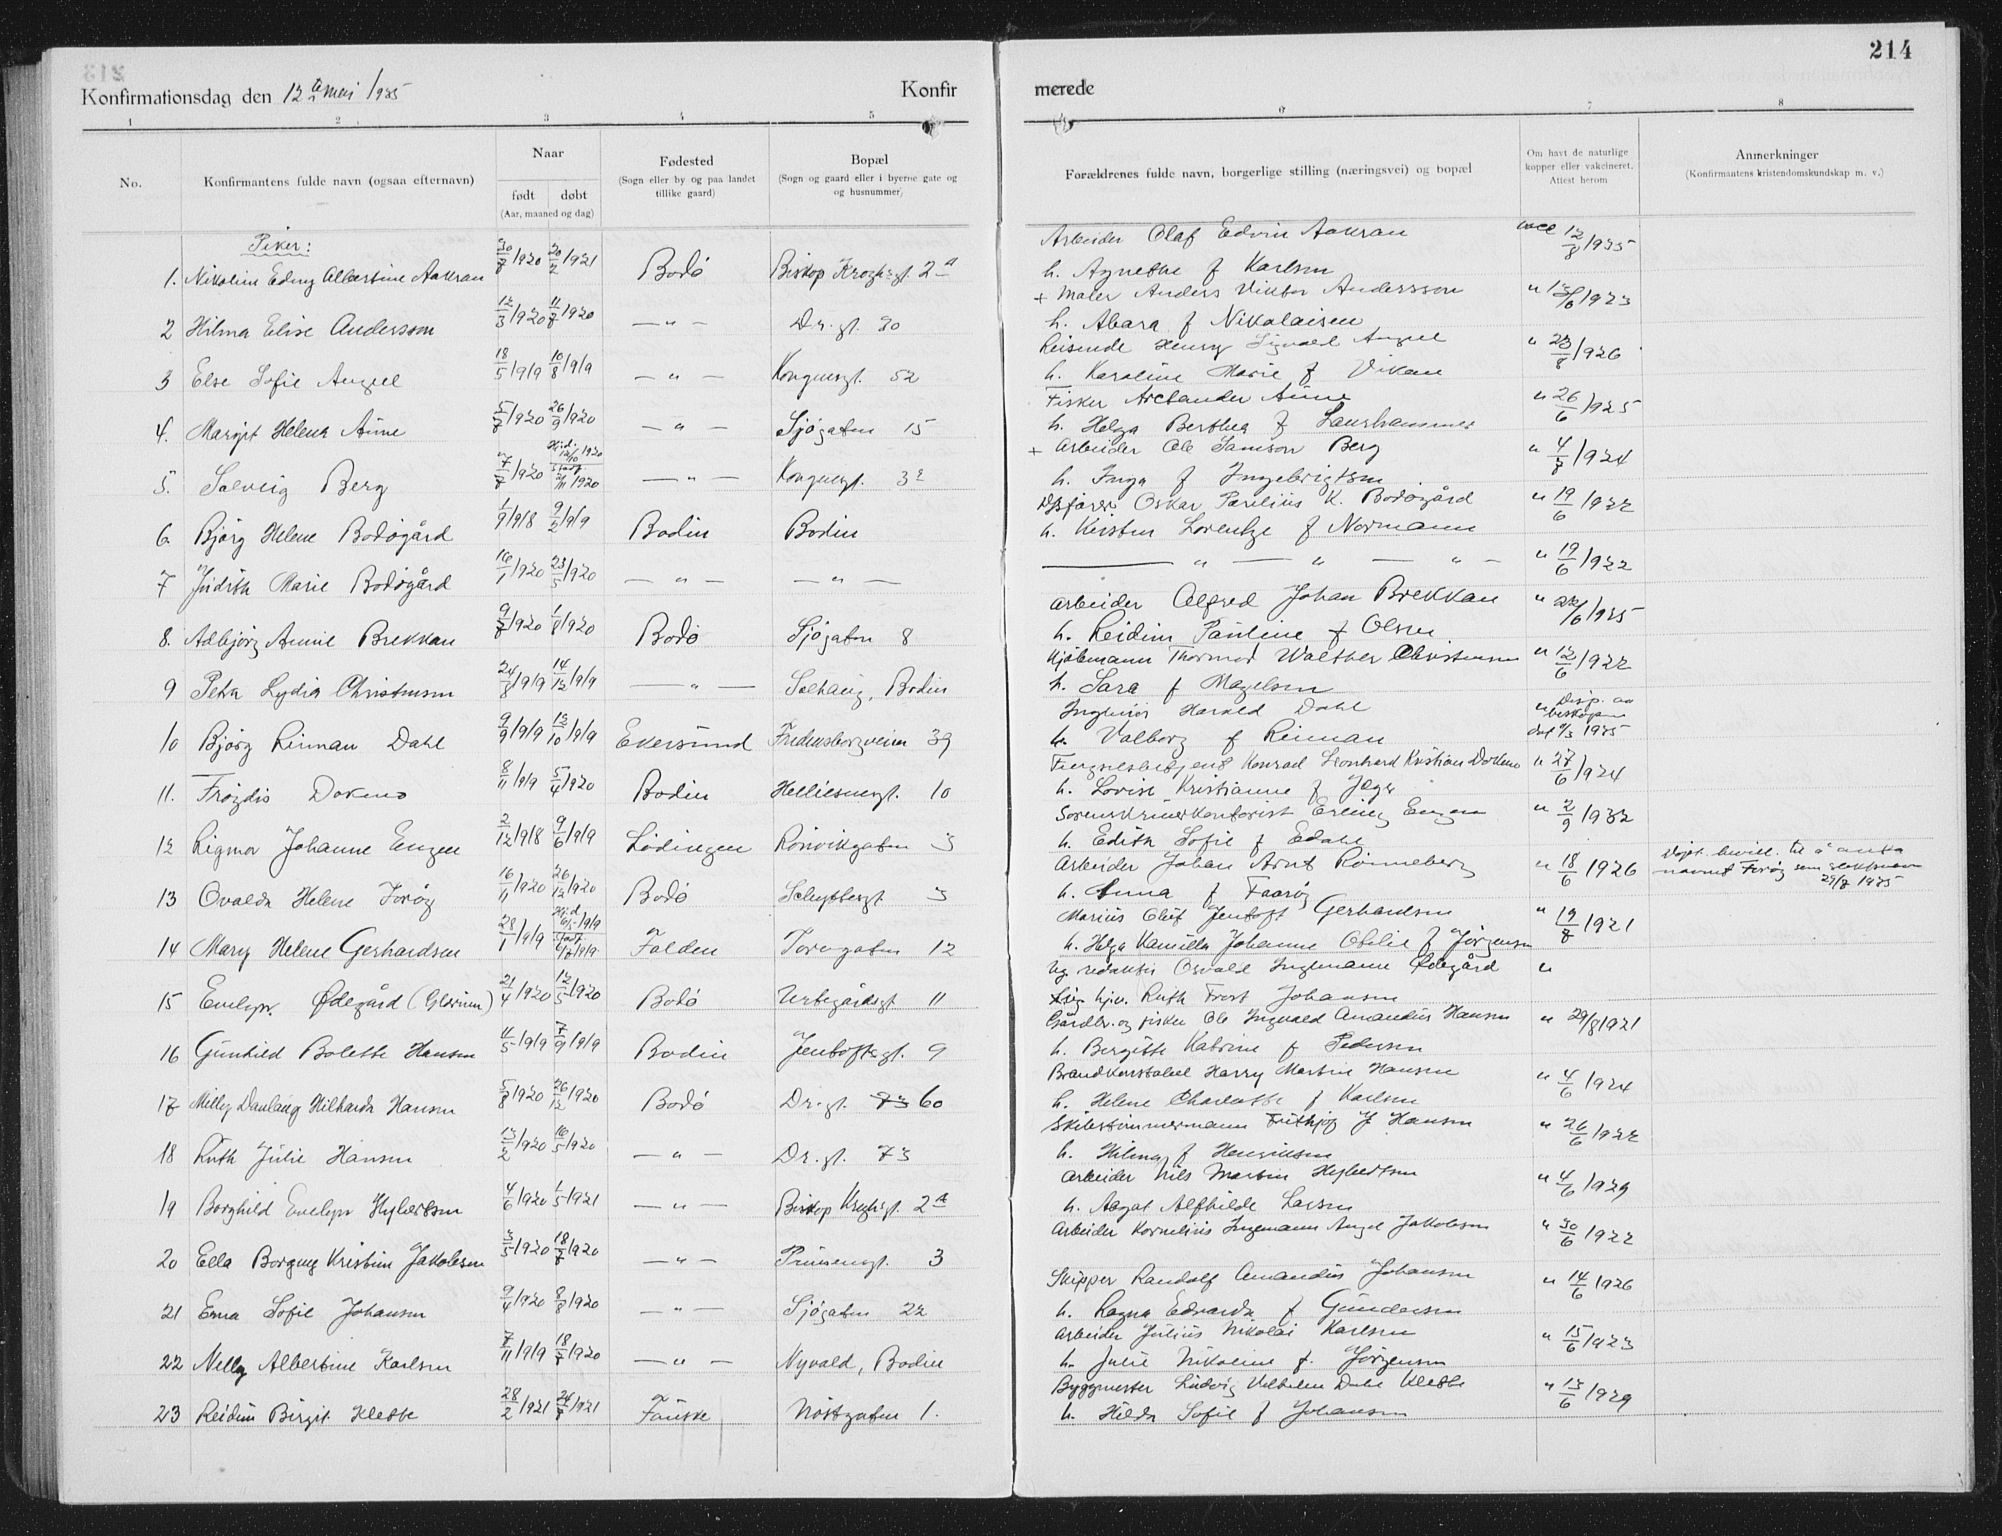 214
Konfirmationsdag den 12te mai 1935 Konfirmerede
1 2 3 4 5 6 7 8
No.
Konfirmantens fulde navn (ogsaa efternavn)
Naar
født døbt
(Aar, maaned og dag)
Fødested
(Sogn eller by og paa landet tillike gaard)
Bopæl
(Sogn og gaard eller i byerne gate og og husnummer)
Forældrenes fulde navn, borgerlige stilling (næringsvei) og bopæl
Om havt de naturlige kopper eller vakcineret. Attest herom
Anmerkninger
(Konfirmantens kristendomskundskap m. v.)
Piker:
1. Nikoline Edny Albertine Aakran 30/8 1920 20/2 1921 Bodö Biskop Kroghsgt. 2a
Arbeider Olaf Edvin Aakran vacc 12/8 1935
h. Agnethe f Karlsen
2 Hilma Elise Andersson 12/3 1920 11/7 1920 — " — Dr. gt. 90
+ Maler Anders Viktor Andersson " 13/6 1923
h. Abara f Nikolaisen
3 Else Sofie Angel 18/5 1919 10/8 1919 — " — Kongensgt. 52
Reisende Henry Sigvald Angel " 23/8 1926
h. Karoline Marie f Vikan
4. Margit Helene Aune 5/7 1920 26/9 1920 — " — Sjögaten 15
Fisker Arctander Aune " 26/6 1925
h. Helga Berthea f Laurhammer
5. Solveig Berg 7/8 1920 Hj.d. 12/10 1920 stadf 1920 — " — Kongensgt. 32
+ Arbeider Ole Samson Berg " 4/7 1924
h. Inga f Ingebrigtsen
6. Bjørg Helene Bodögård 1/9 1918 9/2 1919 Bodin Bodin
Oskar Parelius K. Bodögård " 19/6 1922
h. Kirsten Lorentze f Normann
7 Judith Marie Bodögård 16/1 1920 23/5 1920 — " — — " —
— " — " — " — " 19/6 1922
8. Adbjörg Annie Brekkan 9/7 1920 1/8 1920 Bodö Sjögaten 8
Arbeider Alfred Johan Brekkan " 22/6 1925
h. Reidun Pauline f Olsen
9 Petra Lydia Christensen 24/8 1919 14/12 1919 — " — Solhaug, Bodin
Kjöbmann Thormod Walther Christensen " 12/6 1922
h. Sara f Magelsen
10 Bjørg Rinnan Dahl 9/9 1919 12/10 1919 Ekersund Fredensborgveien 39
Ingeniör Harald Dahl " Disp. av biskopen dat 1935
h. Valborg f Rinnan
11. Fröydis Dokmo 8/11 1919 5/4 1920 Bodin Hellesensgt. 10
Fengselsbetjent Konrad Leonhard Kristian Dokmo " 27/6 1924
h. Lovise Kristianne f Jæger
12 Ligmor Johanne Engen 2/12 1918 9/6 1919 Lödingen Rönvikgaten 5
Sorenskriverkontorist Erling Engen " 2/9 1932
h. Edith Sofie f Edahl
13 Ovalda Helene Foröy 16/11 1920 26/12 1920 Bodö Schyttesgt. 5
Arbeider Johan Arnt Rönneberg " 18/6 1926
h. Anna f Faaröy
bevill. til å anta navnet Foröy som slektsnavn 29/7 1935
14 Mary Helene Gerhardsen 28/1 1919 Hj.d. 1919 stadf 1919 Folden Torvgaten 12
Marius Oluf Jentoft Gerhardsen " 19/8 1921
h. Helga Kamilla Johanne Otelie f Jörgensen
15 Evelyn Ödegård (Glerum) 21/4 1920 12/5 1920 Bodö Urbegårdsgt 11
Ug. redaktör Osvald Ingemann Ödegård "
hjv. Ruth Frost Johansen
16 Gunhild Bolette Hansen 4/5 1919 7/9 1919 Bodin Jentoftsgt. 9
Gårdbr. og fisker Ole Ingvald Amandus Hansen " 29/8 1921
h. Bergitte Katrine f Pedersen
17 Milly Danlaug Hilharda Hansen 5/8 1920 26/12 1920 Bodö Dr. gt. 73 60
Brandkonstabel Harry Martin Hansen " 4/6 1924
h. Helene Charlotte f Karlsen
18 Ruth Julie Hansen 13/2 1920 16/5 1920 — " — Dr. gt. 73
Skibstömmermann Frithjof J Hansen " 26/6 1922
h. Hilma f Henriksen
19 Borghild Evelyn Hylbertsen 4/6 1920 1/5 1921 — " — Biskop Kroghsgt. 2a
Arbeider Nils Martin Hylbertsen " 4/6 1929
h. Aagot Alfhilde Larsen
20 Ella Borgny Kristine Jakobsen 3/5 1920 18/7 1920 — " — Prinsensgt. 3
Arbeider Kornelius Ingemann Angel Jakobsen " 30/6 1922
21 Erna Sofie Johansen 9/4 1920 8/8 1920 — " — Sjögaten 22
Skipper Randolf Amandus Johansen " 14/6 1926
h. Ragna Edvarda f Gundersen
22 Nelly Albertine Karlsen 7/11 1919 18/7 1920 — " — Nyvald, Bodin
Arbeider Julius Nikolai Karlsen " 15/6 1923
h. Julie Nikoline f. Jörgensen
23 Reidun Birgit Klette 28/2 1921 24/7 1921 Fauske Nöstgaten 1.
Byggmester Ludvig Vilhelm Dahl Klette " 13/6 1929
h. Hilda Sofie f Johansen